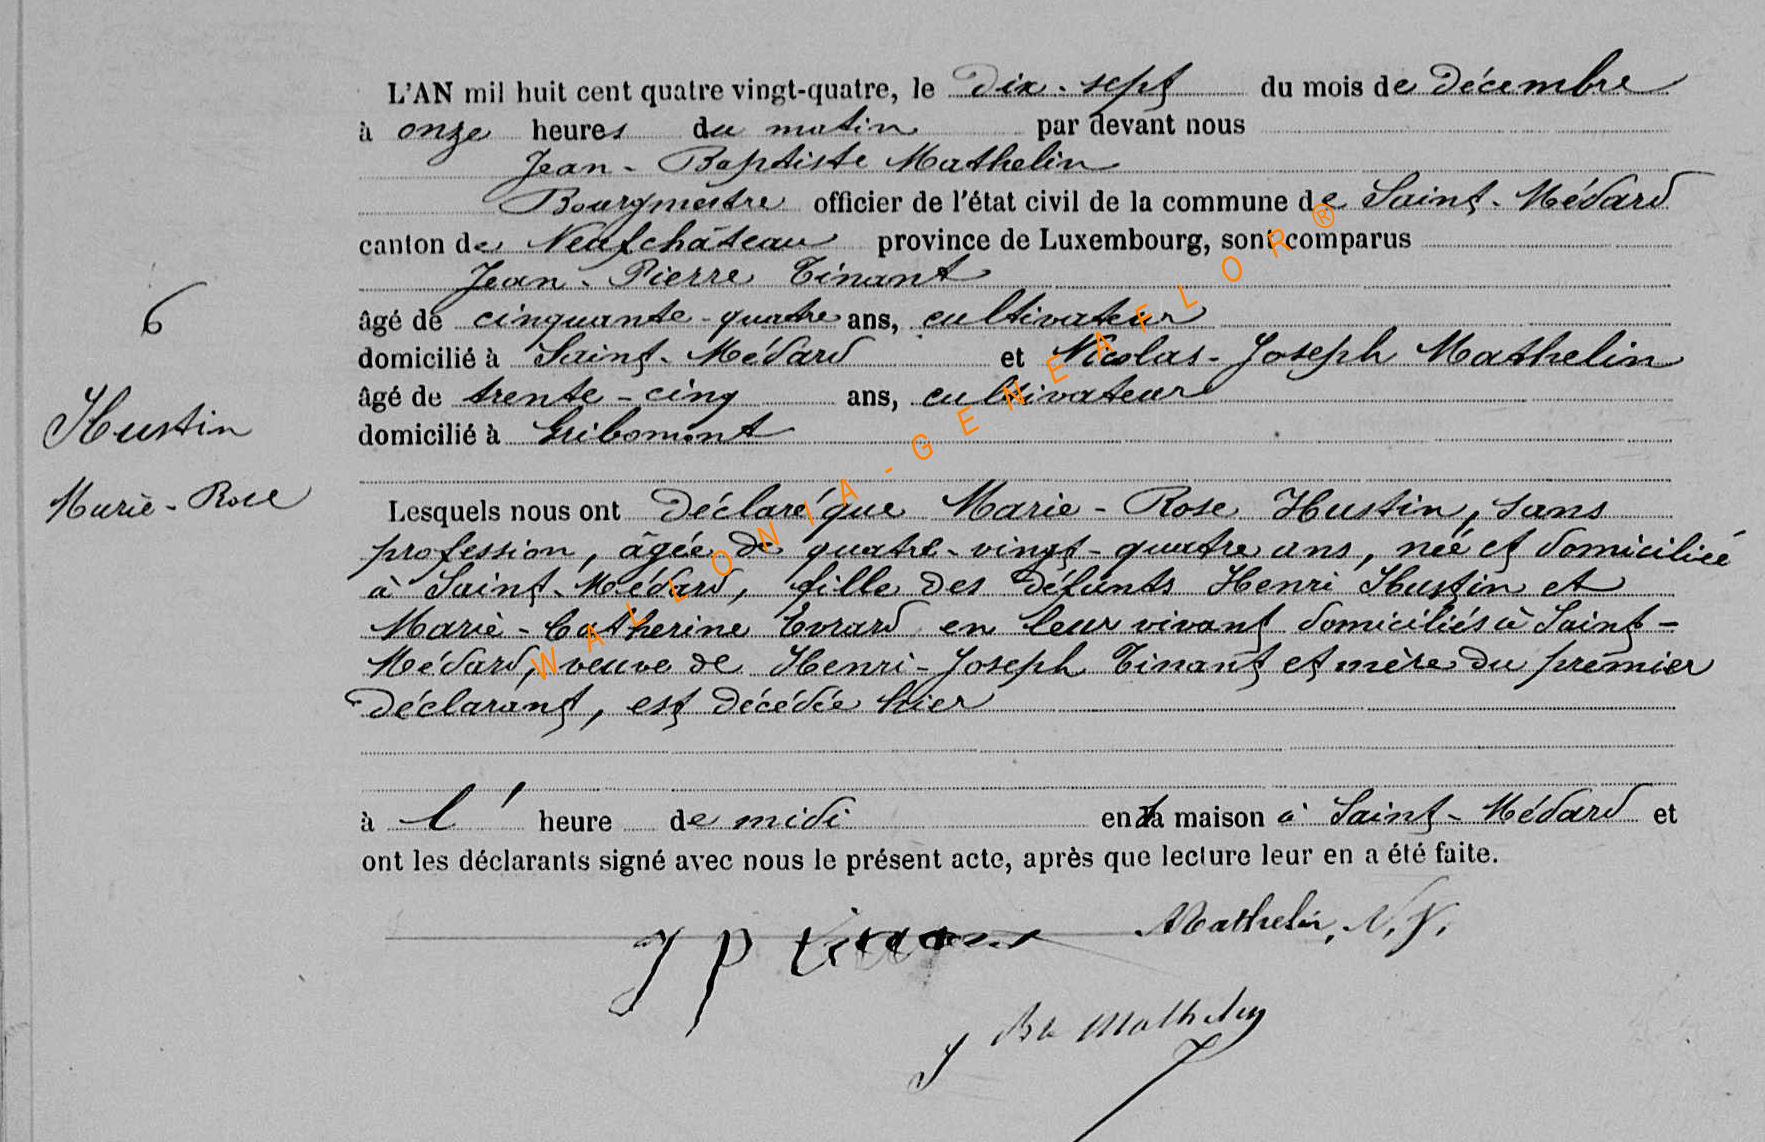 L'AN mil huit cent quatre vingt-quatre, le Dix-sept du mois de Décembre
à onze heures du matin par devant nous
Jean-Baptiste Mathelin
Bourgmestre officier de l'état civil de la commune de Saint-Médard
canton de Neufchâteau province de Luxembourg, sont comparus
Jean-Pierre Tinant
6
âgé de cinquante-quatre ans, cultivateur
domicilié à Saint-Médard et Nicolas-Joseph Mathelin
âgé de trente-cinq ans, cultivateur
Hustin
domicilié à Gribomont
Marie-Rose
Lesquels nous ont Déclaré que Marie-Rose Hustin, sans
profession, âgée de quatre-vingt-quatre ans, née et domiciliée
à Saint-Médard, fille des défunts Henri Hustin et
Marie-Catherine Evrard en leur vivant domiciliés à Saint-
Médard, veuve de Henri-Joseph Tinant et mère du premier
Déclarant, est décédée hier
à l' heure de midi en sa maison à Saint-Médard et
ont les déclarants signé avec nous le présent acte, après que lecture leur en a été faite.
J P tinant Mathelin, N. J.
J Bte Mathelin
WALLONIA-GENEAFLOR®